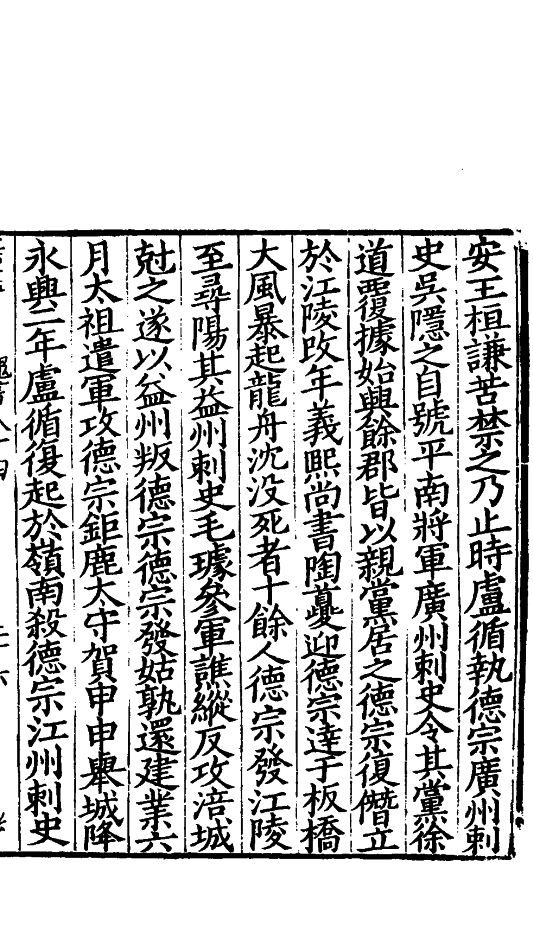 安王桓謙苦禁之乃止時盧循執德宗廣州刺
史吳隱之自號平南將軍廣州刺史令其黨徐
道覆據始興餘郡皆以親黨居之德宗復僭立
於江陵改年義熙尚書陶夔迎德宗達于板橋
大風暴起龍舟沈没死者十餘人德宗發江陵
至尋陽其益州刺史毛璩參軍譙縱反攻涪城
尅之遂以益州叛德宗德宗發姑孰還建業六
月太祖遣軍攻德宗鉅鹿太守賀申申舉城降
永興二年盧循復起於嶺南殺德宗江州刺史